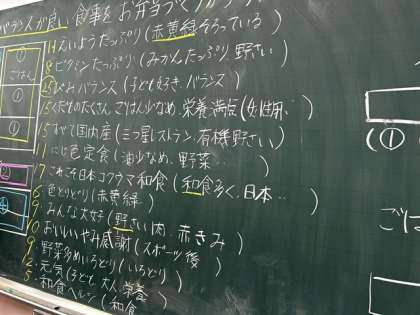 バランスが良い食事をお弁当づくりから
14 えいようたっぷり(赤黄緑そろっている)
8 ビタミンたっぷり(みかんたっぷり、野さい)
25 バランス(子ども好き・バランス)
15 くだものたくさん ごはん少なめ・栄養満点(女性用)
15 すべて国内産(三つ星レストラン、有機野さい)
11 にじ色定食(油少なめ、野菜..)
17 これぞ日本 和食(和食 日本..)
6 色とりどり(赤黄緑)
9 みんな大好(野さい肉・赤きみ)
10 おいしいやみ感謝(スポーツ後)
9 野菜多めいろどり(いろどり)
2 元気(子ども 大人 栄養
5 和食ヘルシー(和食
ごはん
①
①
①
②
④
(①
ごは